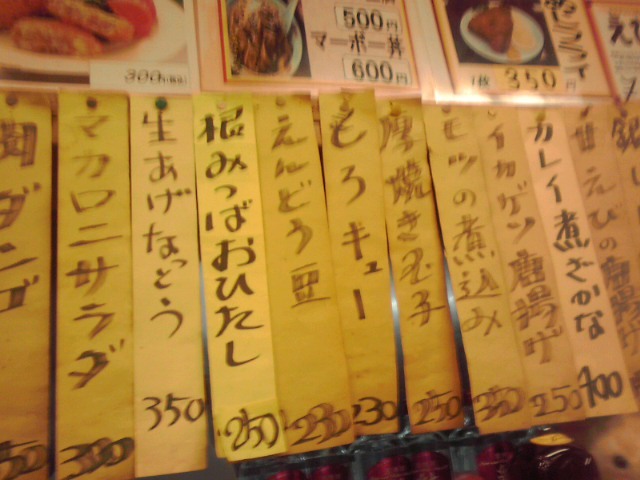 300円(税込)
500円
マーボー丼
600円
1枚 350円
マカロニサラダ
300
生あげなっとう
350
根みつばおひたし
250
えんどう豆
230
もろキュー
230
厚焼き玉子
250
モツの煮込み
350
イカゲソ唐揚げ
250
カレイ煮ざかな
400
えびの唐揚げ